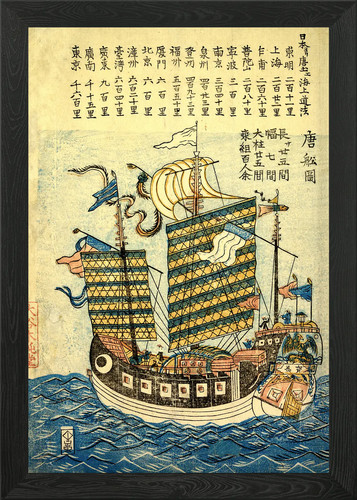 日本ヨリ唐土江海上道法
崇明 二百十一里
上海 二百廿一里
乍甫 二百六十里
普陀山 二百八十里
寧波 三百里
南京 三百四十里
泉州 四百廿三里
登州 四百九十三里
福州 五百五十里
厦門 六百里
北京 六百里
漳州 六百二十里
臺湾 六百四十里
廣東 九百里
廣南 千十五里
東京 千六百里
唐舩圖
長サ廿五間
幅七間
大柱廿五間
乗組百人余